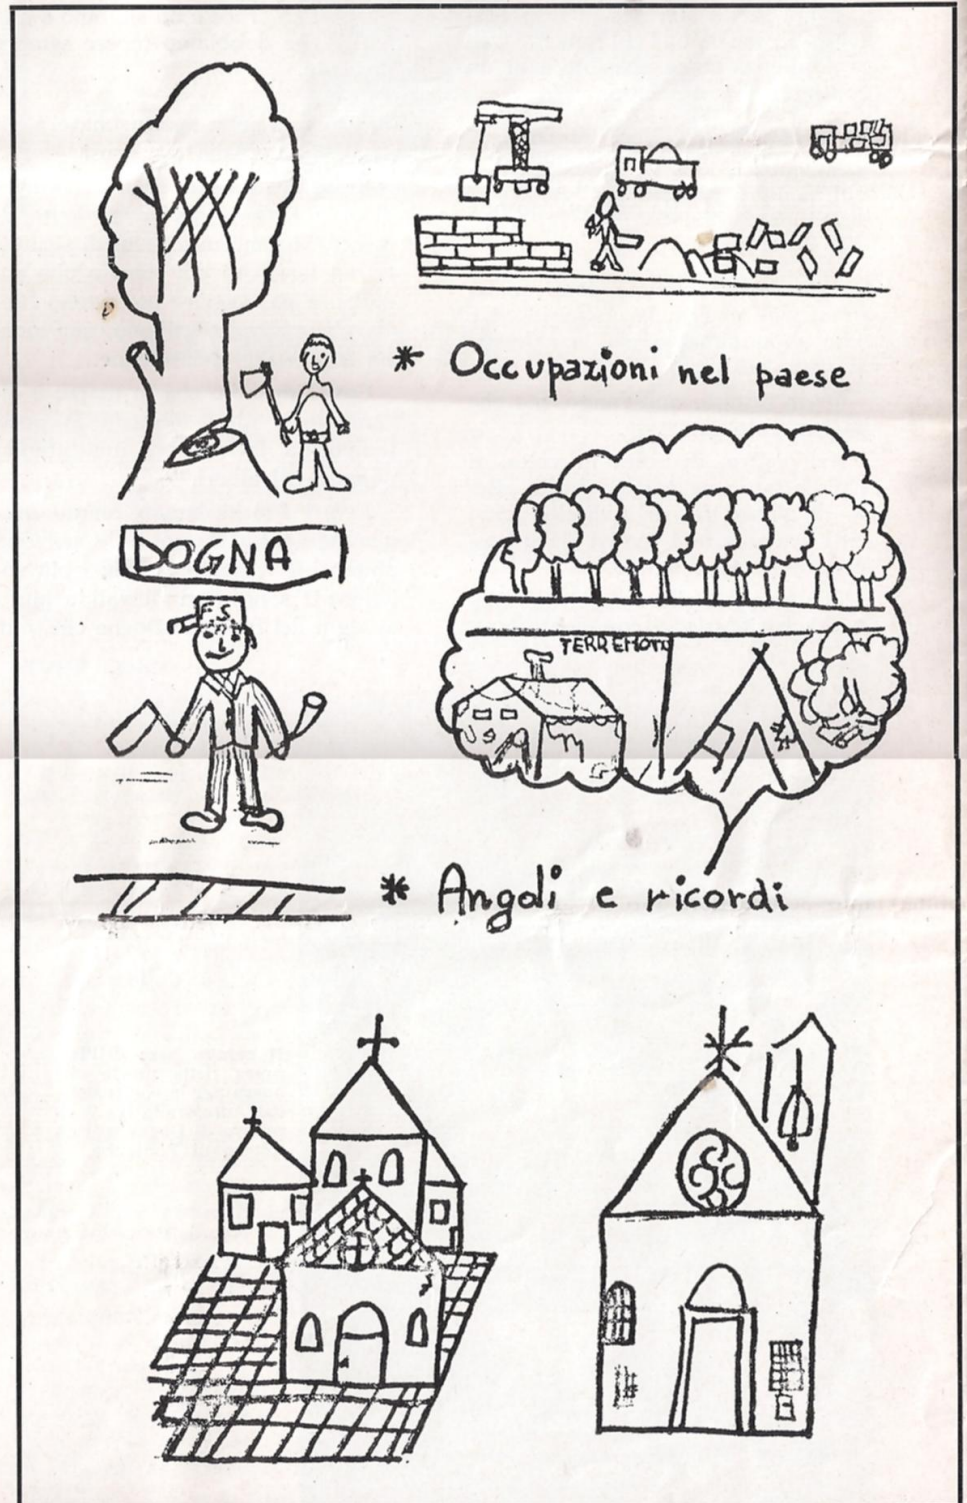 * Occupazioni nel paese
DOGNA
FS
TERREMOTO
* Angoli e ricordi